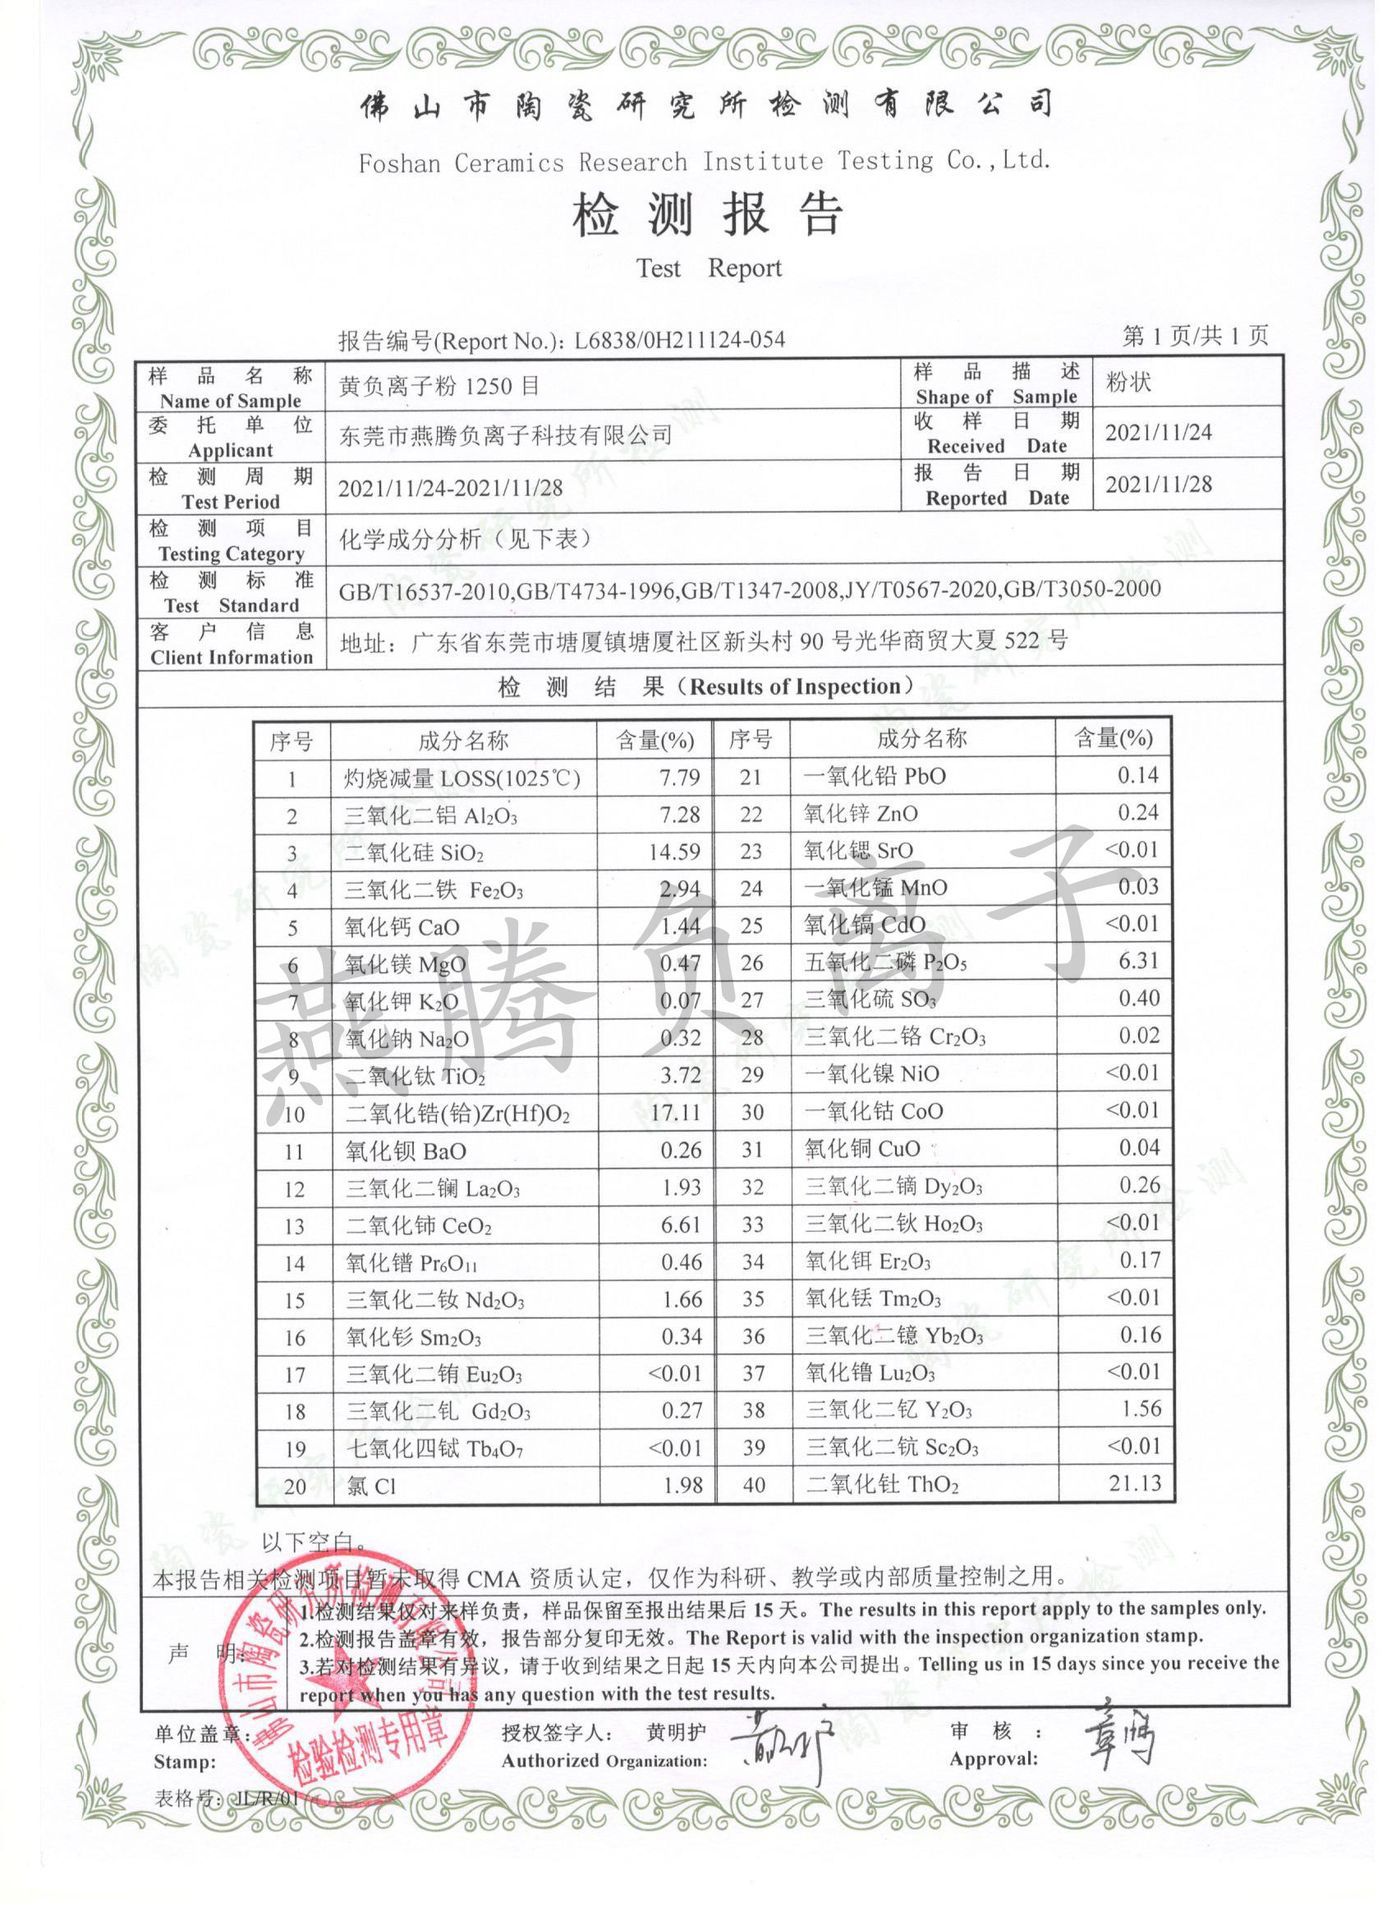 佛山市陶瓷研究所检测有限公司
Foshan Ceramics Research Institute Testing Co.,Ltd.
检测报告
Test Report
报告编号(Report No.): L6838/0H211124-054 第 1 页/共 1 页
样品名称 Name of Sample 黄负离子粉 1250 目 样品描述 Shape of Sample 粉状
委托单位 Applicant 东莞市燕腾负离子科技有限公司 收样日期 Received Date 2021/11/24
检测周期 Test Period 2021/11/24-2021/11/28 报告日期 Reported Date 2021/11/28
检测项目 Testing Category 化学成分分析（见下表）
检测标准 Test Standard GB/T16537-2010,GB/T4734-1996,GB/T1347-2008,JY/T0567-2020,GB/T3050-2000
客户信息 Client Information 地址：广东省东莞市塘厦镇塘厦社区新头村 90 号光华商贸大厦 522 号
检测结果（Results of Inspection）
序号 成分名称 含量(%) 序号 成分名称 含量(%)
1 灼烧减量 LOSS(1025℃) 7.79 21 一氧化铅 PbO 0.14
2 三氧化二铝 Al₂O₃ 7.28 22 氧化锌 ZnO 0.24
3 二氧化硅 SiO₂ 14.59 23 氧化锶 SrO <0.01
4 三氧化二铁 Fe₂O₃ 2.94 24 一氧化锰 MnO 0.03
5 氧化钙 CaO 1.44 25 氧化镉 CdO <0.01
6 氧化镁 MgO 0.47 26 五氧化二磷 P₂O₅ 6.31
7 氧化钾 K₂O 0.07 27 三氧化硫 SO₃ 0.40
8 氧化钠 Na₂O 0.32 28 三氧化二铬 Cr₂O₃ 0.02
9 二氧化钛 TiO₂ 3.72 29 一氧化镍 NiO <0.01
10 二氧化锆(铪)Zr(Hf)O₂ 17.11 30 一氧化钴 CoO <0.01
11 氧化钡 BaO 0.26 31 氧化铜 CuO 0.04
12 三氧化二镧 La₂O₃ 1.93 32 三氧化二镝 Dy₂O₃ 0.26
13 二氧化铈 CeO₂ 6.61 33 三氧化二钬 Ho₂O₃ <0.01
14 氧化镨 Pr₆O₁₁ 0.46 34 氧化铒 Er₂O₃ 0.17
15 三氧化二钕 Nd₂O₃ 1.66 35 氧化铥 Tm₂O₃ <0.01
16 氧化钐 Sm₂O₃ 0.34 36 三氧化二镱 Yb₂O₃ 0.16
17 三氧化二铕 Eu₂O₃ <0.01 37 氧化镥 Lu₂O₃ <0.01
18 三氧化二钆 Gd₂O₃ 0.27 38 三氧化二钇 Y₂O₃ 1.56
19 七氧化四铽 Tb₄O₇ <0.01 39 三氧化二钪 Sc₂O₃ <0.01
20 氯 Cl 1.98 40 二氧化钍 ThO₂ 21.13
燕腾负离子
以下空白。
本报告相关检测项目暂未取得 CMA 资质认定，仅作为科研、教学或内部质量控制之用。
声 明:
1.检测结果仅对来样负责，样品保留至报出结果后 15 天。The results in this report apply to the samples only.
2.检测报告盖章有效，报告部分复印无效。The Report is valid with the inspection organization stamp.
3.若对检测结果有异议，请于收到结果之日起 15 天内向本公司提出。Telling us in 15 days since you receive the
report when you has any question with the test results.
佛山市陶瓷研究所检测有限公司
检验检测专用章
单位盖章: 授权签字人: 黄明护 审 核 :
Stamp: Authorized Organization: Approval:
表格号: JL/R/01